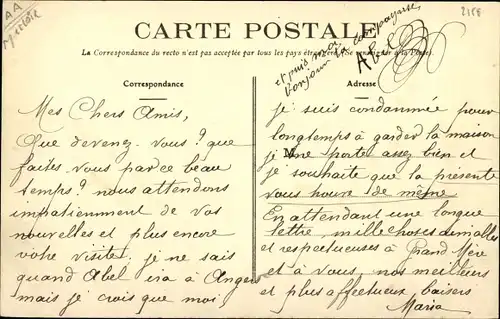 AA
2158
CARTE POSTALE
La Correspondance du recto n'est pas acceptée par tous les pays étrangers (Se renseigner à la Poste).
et puis moi
bonjour la compagnie
Abel
Correspondance
Mes Chers Amis,
Que devenez-vous? que
faites-vous par ce beau
temps? nous attendons
impatiemment de vos
nouvelles et plus encore
votre visite. je ne sais
quand Abel ira à Angers
mais je crois que moi,
Adresse
je suis condamnée pour
longtemps à garder la maison
M
je me porte assez bien et
je souhaite que la présente
vous trouve de même
En attendant une longue
lettre, mille choses aimables
et respectueuses à Grand'Mère
et à vous, nos meilleurs
et plus affectueux baisers
Maria